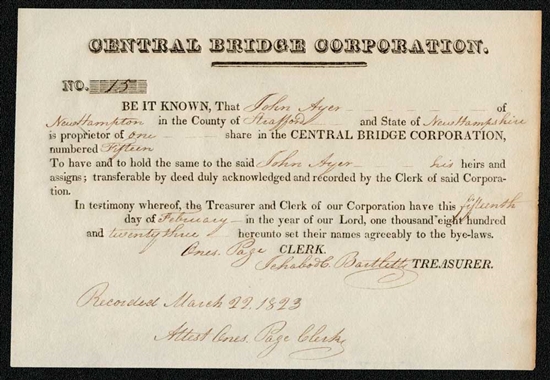 CENTRAL BRIDGE CORPORATION.
NO. 15
BE IT KNOWN, That John Ayer of
New Hampton in the County of Strafford and State of New Hampshire
is proprietor of one share in the CENTRAL BRIDGE CORPORATION,
numbered Fifteen
To have and to hold the same to the said John Ayer his heirs and
assigns; transferable by deed duly acknowledged and recorded by the Clerk of said Corpora-
tion.
In testimony whereof, the Treasurer and Clerk of our Corporation have this fifteenth
day of February in the year of our Lord, one thousand eight hundred
and twenty three hereunto set their names agreeably to the bye-laws.
Ones. Page CLERK.
Ichabod C. Bartlett TREASURER.
Recorded March 22. 1823
Attest Ones. Page Clerk